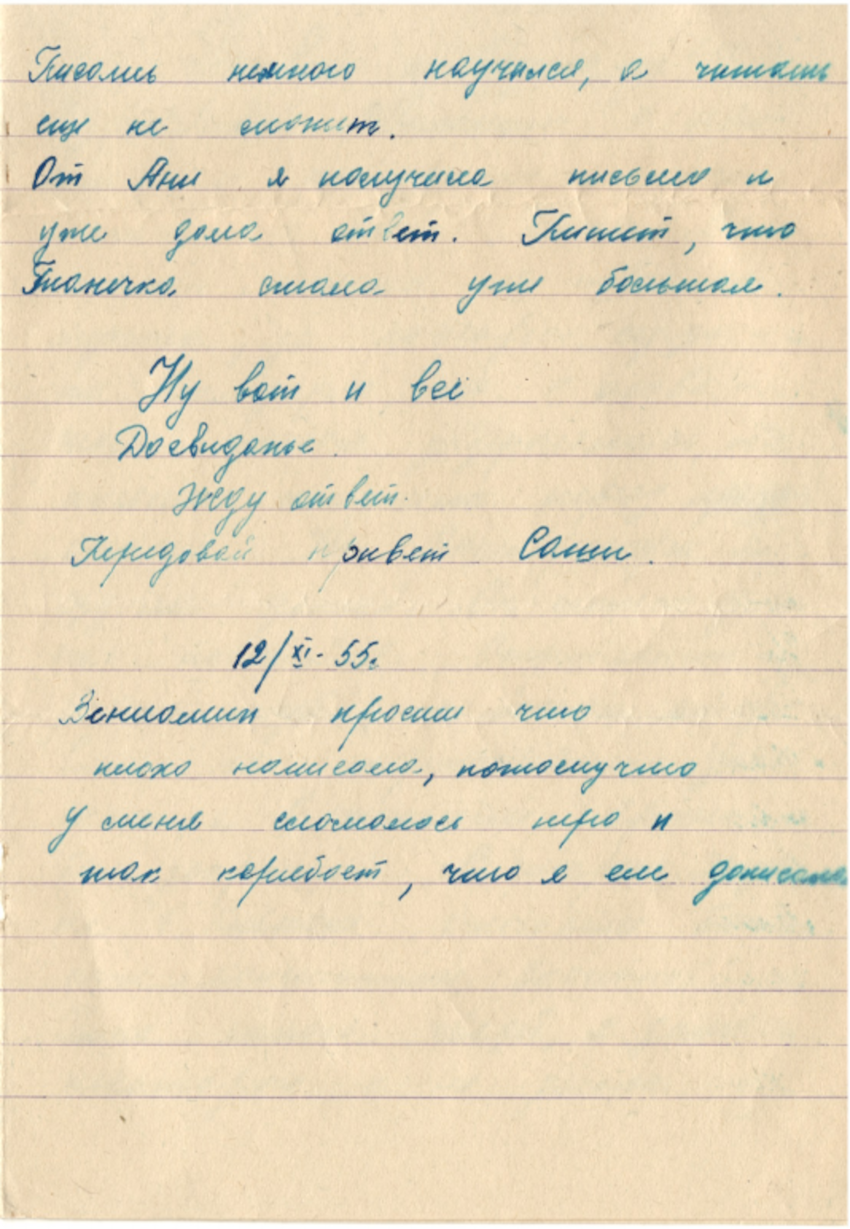 Писать немного научился, а читать
еще не может.
От Ани я получила письмо и
уже дала ответ. Пишет, что
Танечка стала уже большая.
Ну вот и все
Досвиданье.
Жду ответ.
Передавай привет Саши.
12/XI-55г
Вениамин прости что
плохо написала, потомучто
у меня сломалось перо и
так карябает, что я еле дописала